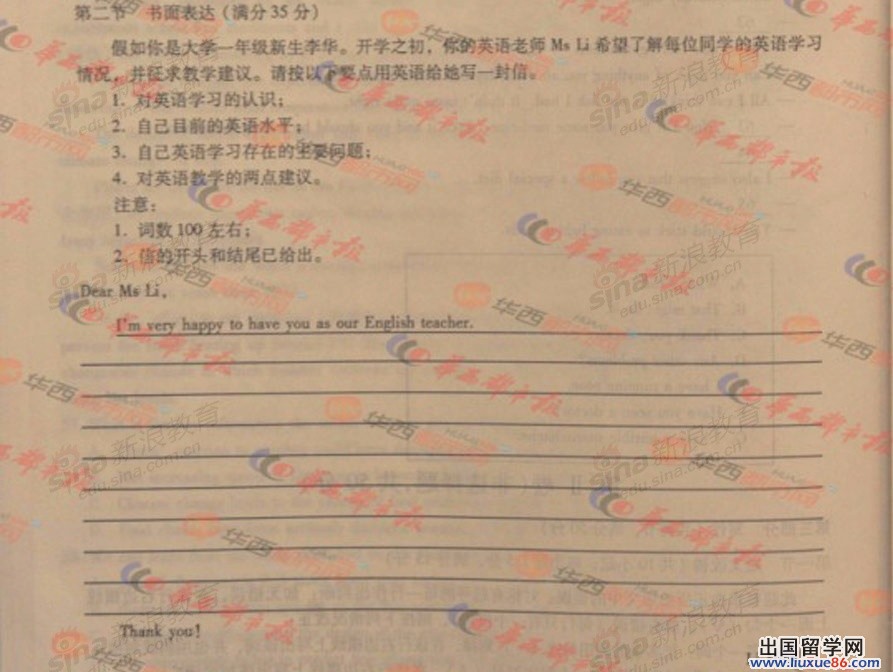 第二节 书面表达（满分35分）
假如你是大学一年级新生李华。开学之初，你的英语老师 Ms Li 希望了解每位同学的英语学习
情况，并征求教学建议。请按以下要点用英语给她写一封信。
1. 对英语学习的认识；
2. 自己目前的英语水平；
3. 自己英语学习存在的主要问题；
4. 对英语教学的两点建议。
注意：
1. 词数 100 左右；
2. 信的开头和结尾已给出。
Dear Ms Li,
I'm very happy to have you as our English teacher.
Thank you!
华西都市报
新浪教育
sina
edu.sina.com.cn
华西
出国留学网
www.liuxue86.com